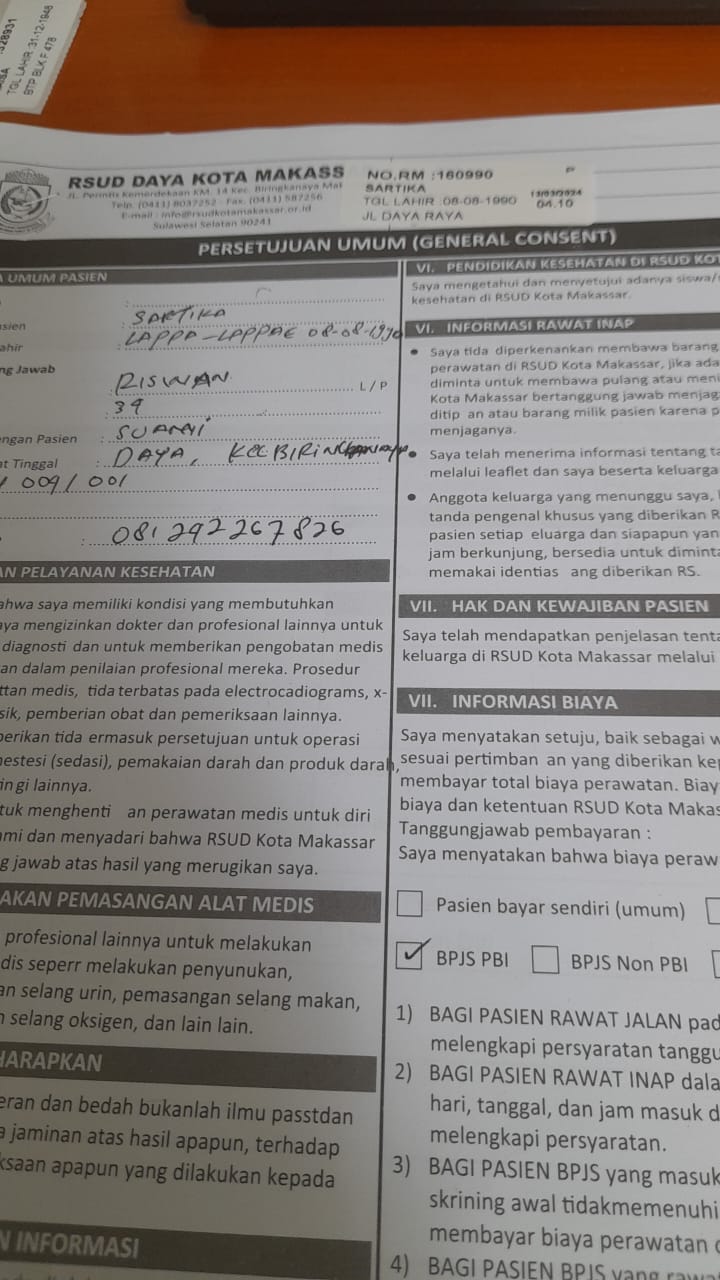 328931
TGL LAHIR :31-12-1948
BTP BLK F 478
RSUD DAYA KOTA MAKASS
JL. Perintis Kemerdekaan KM. 14 Kec. Biringkanaya Mak
Telp. (0411) 8037252 - Fax. (0411) 587256
E-mail : info@rsudkotamakassar.or.id
Sulawesi Selatan 90241
NO.RM :160990
P
SARTIKA
TGL LAHIR :08-08-1990
13/03/2024
04.10
JL DAYA RAYA
PERSETUJUAN UMUM (GENERAL CONSENT)
UMUM PASIEN
sien : SARTIKA
ahir : LAPPA-LAPPAE 08-08-1990
ng Jawab
: RISWAN L / P
: 39
ngan Pasien : SUAMI
t Tinggal : DAYA, KEC BIRINGKANAYA
/ 009 / 001
: 081 292 267 826
AN PELAYANAN KESEHATAN
ahwa saya memiliki kondisi yang membutuhkan
aya mengizinkan dokter dan profesional lainnya untuk
diagnosti dan untuk memberikan pengobatan medis
an dalam penilaian profesional mereka. Prosedur
ttan medis, tida terbatas pada electrocadiograms, x-
sik, pemberian obat dan pemeriksaan lainnya.
berikan tida ermasuk persetujuan untuk operasi
nestesi (sedasi), pemakaian darah dan produk darah,
in gi lainnya.
tuk menghenti an perawatan medis untuk diri
mi dan menyadari bahwa RSUD Kota Makassar
g jawab atas hasil yang merugikan saya.
AKAN PEMASANGAN ALAT MEDIS
profesional lainnya untuk melakukan
dis seperr melakukan penyunukan,
an selang urin, pemasangan selang makan,
n selang oksigen, dan lain lain.
HARAPKAN
eran dan bedah bukanlah ilmu passtdan
a jaminan atas hasil apapun, terhadap
ksaan apapun yang dilakukan kepada
N INFORMASI
VI. PENDIDIKAN KESEHATAN DI RSUD KOT
Saya mengetahui dan menyetujui adanya siswa/
kesehatan di RSUD Kota Makassar.
VI. INFORMASI RAWAT INAP
● Saya tida diperkenankan membawa barang
perawatan di RSUD Kota Makassar, jika ada
diminta untuk membawa pulang atau meni
Kota Makassar bertanggung jawab menjag
ditip an atau barang milik pasien karena p
menjaganya.
● Saya telah menerima informasi tentang ta
melalui leaflet dan saya beserta keluarga
● Anggota keluarga yang menunggu saya,
tanda pengenal khusus yang diberikan R
pasien setiap eluarga dan siapapun yan
jam berkunjung, bersedia untuk diminta
memakai identias ang diberikan RS.
VII. HAK DAN KEWAJIBAN PASIEN
Saya telah mendapatkan penjelasan tenta
keluarga di RSUD Kota Makassar melalui
VII. INFORMASI BIAYA
Saya menyatakan setuju, baik sebagai w
sesuai pertimban an yang diberikan kep
membayar total biaya perawatan. Biay
biaya dan ketentuan RSUD Kota Makas
Tanggungjawab pembayaran :
Saya menyatakan bahwa biaya peraw
Pasien bayar sendiri (umum)
✓ BPJS PBI BPJS Non PBI
1) BAGI PASIEN RAWAT JALAN pad
melengkapi persyaratan tanggu
2) BAGI PASIEN RAWAT INAP dala
hari, tanggal, dan jam masuk d
melengkapi persyaratan.
3) BAGI PASIEN BPJS yang masuk
skrining awal tidakmemenuhi
membayar biaya perawatan
4) BAGI PASIEN BPJS yang raw